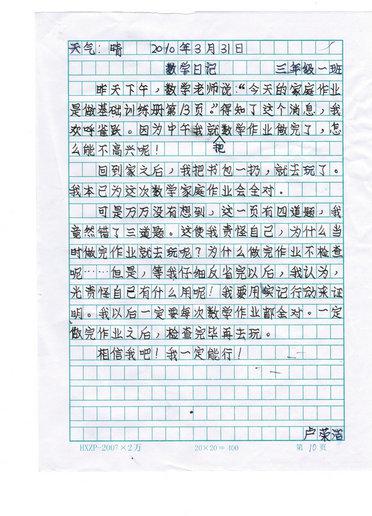 天气：晴 2010年3月31日
数学日记 三年级一班
昨天下午，数学老师说：“今天的家庭作业
是做基础训练册第13页。”得知了这个消息，我
欢呼雀跃。因为中午我就数学作业做完了，怎
把
么能不高兴呢！
回到家之后，我把书包一扔，就去玩了。
我本已为这次数学家庭作业会全对。
可是万万没有想到，这一页有四道题，我
竟然错了三道题。这使我责怪自己，为什么当
时做完作业就去玩呢？为什么做完作业不检查
呢……但是，等我仔细反省完以后，我认为，
光责怪自己有什么用呢！我要用实记行动来证
明。我以后一定要每次数学作业都全对。一定
做完作业之后，检查完毕再去玩。
相信我吧！我一定能行！
卢荣
HXZP-2007×2万 20×20=400 第10页